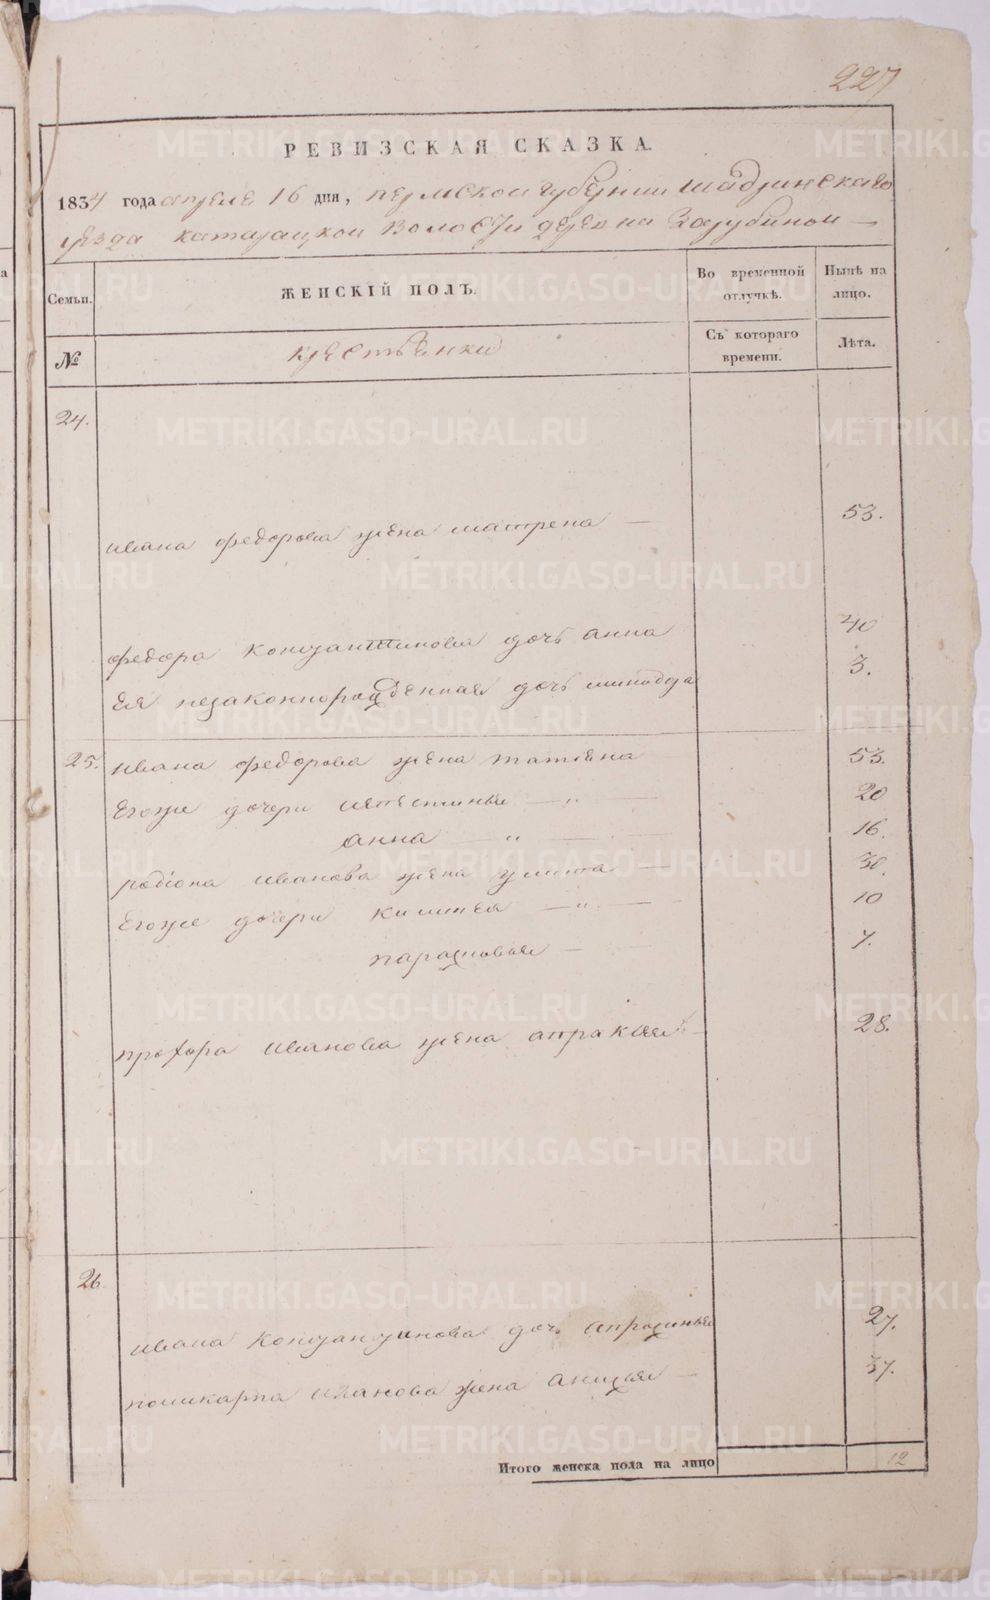 227
РЕВИЗСКАЯ СКАЗКА.
1834 года апреля 16 дня, пермской губернии шадринскаго
уезда катайской волости деревни Зарубиной
Семьи. ЖЕНСКІЙ ПОЛЪ. Во временной отлучкѣ. Нынѣ на лицо.
№ крестьянки Съ котораго времени. Лѣта.
24.
ивана федорова жена матрена — 53.
федора константинова дочь анна 40
Ея незаконнорожденная дочь 3.
25. ивана федорова жена татьяна 53.
Егоже дочери — „ — 20
анна — „ — 16.
родiона иванова жена улита — 30.
Егоже дочери — „ — 10
парасковья — 7.
прохора иванова жена апраксия — 28.
26.
ивана константинова дочь апросинья 27.
поликарпа иванова жена анисья — 37.
Итого женска пола на лицо 12
METRIKI.GASO-URAL.RU